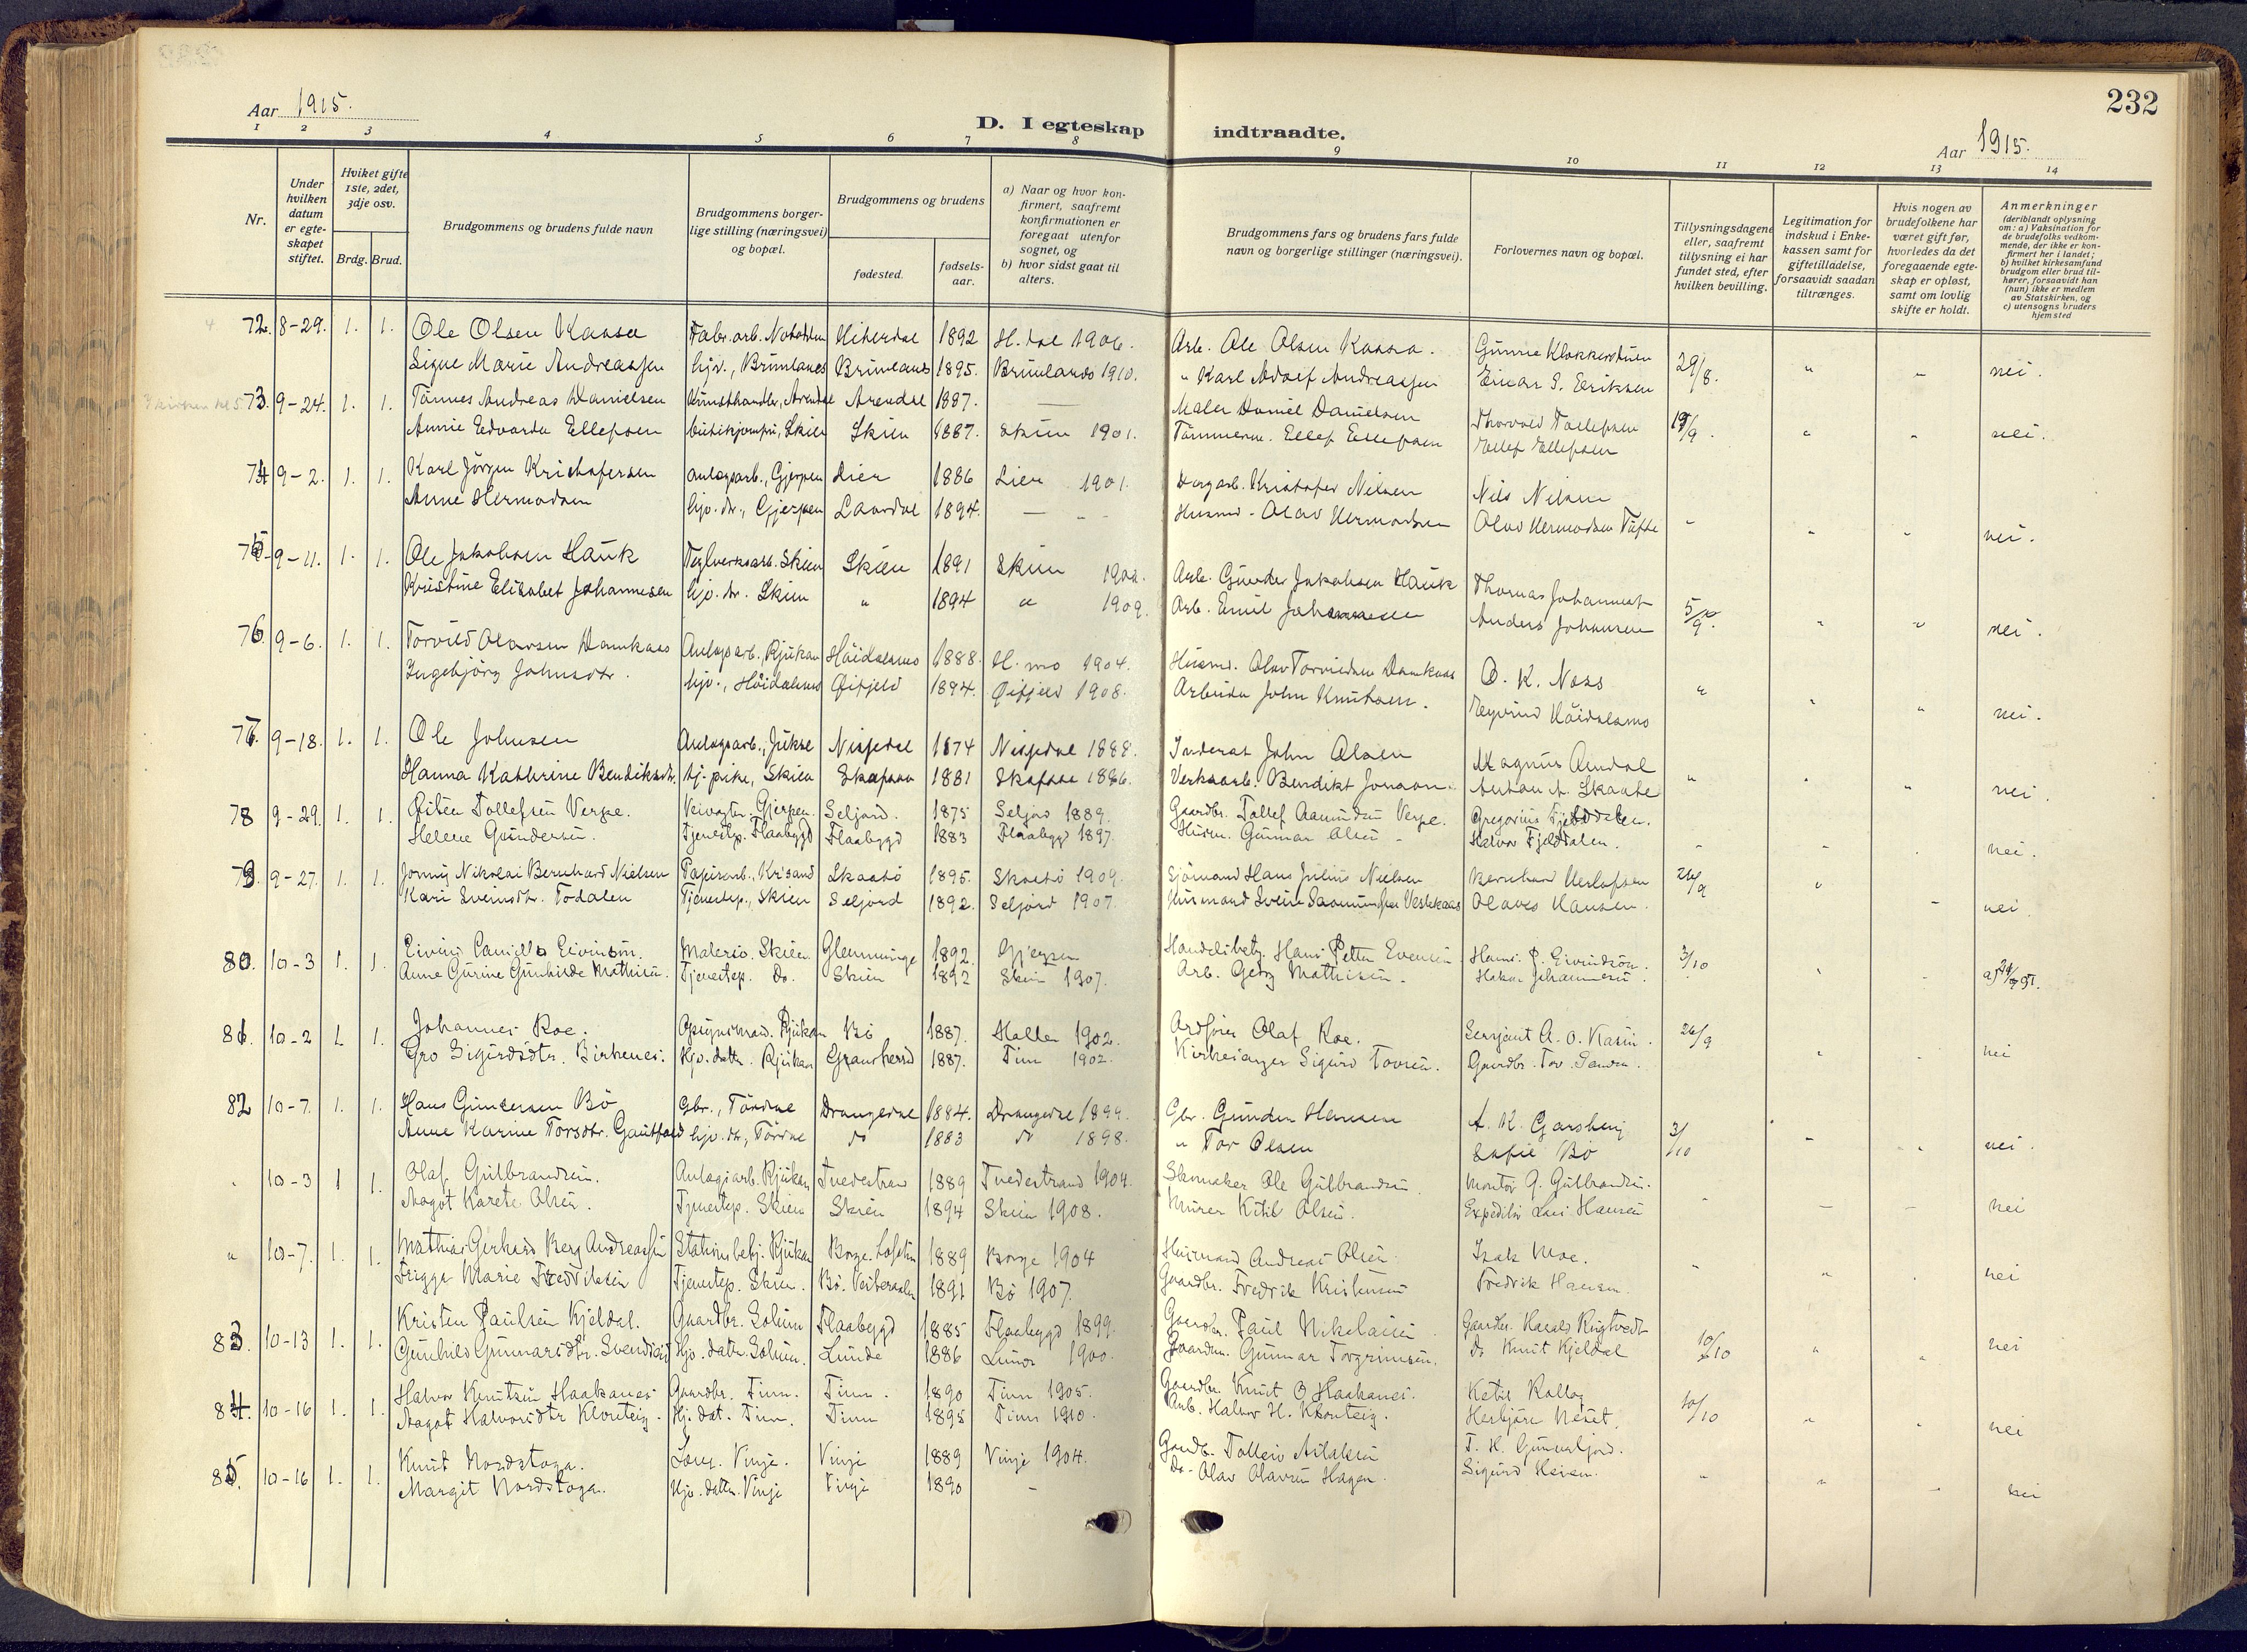 232
Aar 1915.
D. I egteskap indtraadte.
Aar 1915.
1 2 3 4 5 6 7 8 9 10 11 12 13 14
Nr.
Under hvilken datum er egteskapet stiftet.
Hvilket gifte 1ste, 2det, 3dje osv.
Brdg. Brud.
Brudgommens og brudens fulde navn
Brudgommens borgerlige stilling (næringsvei) og bopæl.
Brudgommens og brudens
fødested.
fødselsaar.
a) Naar og hvor konfirmert, saafremt konfirmationen er foregaat utenfor sognet, og
b) hvor sidst gaat til alters.
Brudgommens fars og brudens fars fulde navn og borgerlige stillinger (næringsvei).
Forlovernes navn og bopæl.
Tillysningsdagene eller, saafremt tillysning ei har fundet sted, efter hvilken bevilling.
Legitimation for indskud i Enkekassen samt for giftetilladelse, forsaavidt saadan tiltrænges.
Hvis nogen av brudefolkene har været gift før, hvorledes da det foregaaende egteskap er opløst, samt om lovlig skifte er holdt.
Anmerkninger (deriblandt oplysning om: a) Vaksination for de brudefolks vedkommende, der ikke er konfirmert her i landet; b) hvilket kirkesamfund brudgom eller brud tilhører, forsaavidt han (hun) ikke er medlem av Statskirken, og c) utensogns bruders hjemsted
72. 8-29. 1. 1. Ole Olsen Kaasa Fabr.arb. Notodden Hiterdal 1892 H.dal 1906. Arb. Ole Olsen Kaasa. Gunne Klokkerstuen 29/8. " " nei.
Signe Marie Andreassen hjv., Brunlanes Brunlanes 1895. Brunlanes 1910. " Karl Adolf Andreassen Einar S. Eriksen
73. 9-24. 1. 1. Tønnes Andreas Danielsen Kunsthandler, Arendal Arendal 1887. — Maler Daniel Danielsen Thorvald Tollefsen 19/9. " " nei.
Annie Edvarda Ellefsen Skien Skien 1887. Skien 1901. Tømmerm. Ellef Ellefsen Ellef Ellefsen
74 9-2. 1. 1. Karl Jörgen Kristofersen anlægsarb., Gjerpen Lier 1886 Lier 1901. Kristofer Nilsen Nils Nilsen
Anne Hermodsen hjv. dr., Gjerpen Laardal 1894. — Husmd. Olav Hermodsen Olav Hermodsen Tufte - " " nei.
75 9-11. 1. 1. Ole Jakobsen Hauk Teglverksarb. Skien Skien 1891 Skien Arb. Gunder Jakobsen Hauk Thomas Johannes
Kristine Elisabet Johannesen hjv. dr. Skien " 1894 " 1909. Arb. Emil Johannesen Anders Johansen " " nei.
76. 9-6. 1. 1. Torvild Olavsen Damkaas Anlægsarb., Rjukan Höidalsmo 1888. H.mo 1904. Husmd. Olav Torvildsen Damkaas O. K. Næss
Ingebjörg Johnsdtr. hjv., Höidalsmo Øifjeld 1894. Øifjeld 1908. Arbeider John Knutsen. Eyvind Höidalsmo " " " nei.
77. 9-18. 1. 1. Ole Johnsen Anlægsarb., Jukse Nissedal 1874 Nissedal 1888. Inderst John Olsen Magnus Omdal
Hanna Kathrine Bendiksdtr. tj. pike, Skien Skafsaa 1881 Skafsaa 1896. Verksarb. Bendikt Jonson. Anton A. Skaate " " " nei.
78 9-29. 1. 1. Østen Tollefsen Verpe. Veivogter. Gjerpen. Seljord. 1875 Seljord 1889. Gaardbr. Tollef Aamundsen Verpe. Gregorius Fjelddalen.
Helene Gundersen. Tjenestep. Flaabygd Flaabygd 1883 Flaabygd 1897. Husm. Gunnar Olsen - Halvor Fjelddalen. - - nei.
79. 9-27. 1. 1. Jonny Nikolai Bernhard Nielsen Papirarb., Krisand Skaatö 1895. Skaatö 1909. Sjömand Hans Julius Nielsen Bernhard Nerlofsen 26/9 "
Kari Sveinsdtr. Todalen Tjenestep., Skien Seljord 1892. Seljord 1907. Husmand Svein Saamundsen Vestekaas Olaves Hansen. - nei.
80. 10-3 1. 1. Eivind Camillo Eivindson. Malersv. Skien. Glemminge 1892. Gjerpen Handelsbetj. Hans Petter Evensen Hans. P. Eivindsön. 3/10
Anne Gurine Gunhilde Mathisen. Tjenestep. Do. Skien 1892 Skien 1907. Arb. Georg Mathisen. Hakon Johannesen. " -
81. 10-2 1. 1. Johannes Roe. Rjukan Bö 1887. Holla 1902. Ordförer Olaf Roe. Serjant A. O. Kasin. 26/9
Gro Sigurdsdtr. Birkenes. Hjv. datter. Rjukan Gransherad 1887. Tinn 1902. Kirkesanger Sigurd Tovsen. Gaardbr. Tov. " - nei
82 10-7. 1. 1. Hans Gundersen Bö Gbr., Tördal Drangedal 1884. Drangedal 1899. Gbr. Gunder Hansen A. K. Garsberg 3/10
Anne Karine Torsdtr. Gautefald hjv. dr, Tördal do 1883 do 1898. " Tor Olsen Sofie Bö - " nei.
" 10-3 1 1. Olaf Gulbrandsen. Anlægsarb. Rjukan Tvedestrand 1889 Tvedestrand 1904. Skomaker Ole Gulbrandsen. Montör G. Gulbrandsen.
Aagot Karete Olsen. Tjenestep. Skien Skien 1894 Skien 1908. Murer Kitil Olsen. Expeditör Lars Hansen - - - nei
" 10-7. 1. 1. Mathias Gerhard Berg Andreassen Stationsbetj. Rjukan Borge. Lofoten 1889 Borge 1904 Husmand Andreas Olsen. Isak Moe.
Frigga Marie Fredriksen Tjenestep. Skien. Bö. Vesteraalen 1891 Bö 1907. Gaardbr. Fredrik Kristensen Fredrik Hansen. - " nei
83. 10-13 1. 1. Kristen Paulsen Kjeldal. Gaardbr. Solum Flaabygd 1885 Flaabygd 1899. Gaardbr. Paul Nikolaisen. Gaardbr. Harald Rugtvedt 10/10
Gunhild Gunnarsdtr. Svendsaas Hjv. datter. Solum. Lunde 1886 Lunde 1900. Gaardm. Gunnar Torgrimsen. do Knut Kjeldal " " nei
84. 10-16 1. 1. Halvor Knutsen Haakanes Gaardbr. Tinn. Tinn. 1890 Tinn 1905. Gaardbr. Knut O Haakanes. Ketil Rollag 10/10
Aagot Halvorsdtr Klonteig. Hj. dat. Tinn. Tinn 1895 Tinn 1910. Arb. Halvor H. Klonteig. Herbjörn Neset. " " nei
85. 10-16 1. 1. Knut Nordstoga. Vinje. Vinje 1889 Vinje 1904. Gaardb. Tolleiv Aslaksen T. H. Gunnulfjord.
Margit Nordstoga. Hjv. datter. Vinje Vinje 1890 - Do- Olav Olavsen Hagen. Sigurd - " - nei